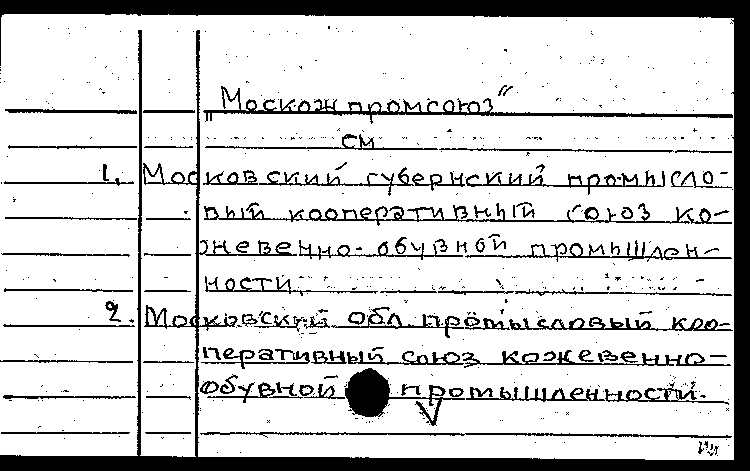 „Москожпромсоюз"
см
1. Московский губернский промысло-
вый кооперативный союз ко-
жевенно-обувной промышлен-
ности.
2. Московский обл. промысловый коо-
перативный союз кожевенно-
обувной промышленности.